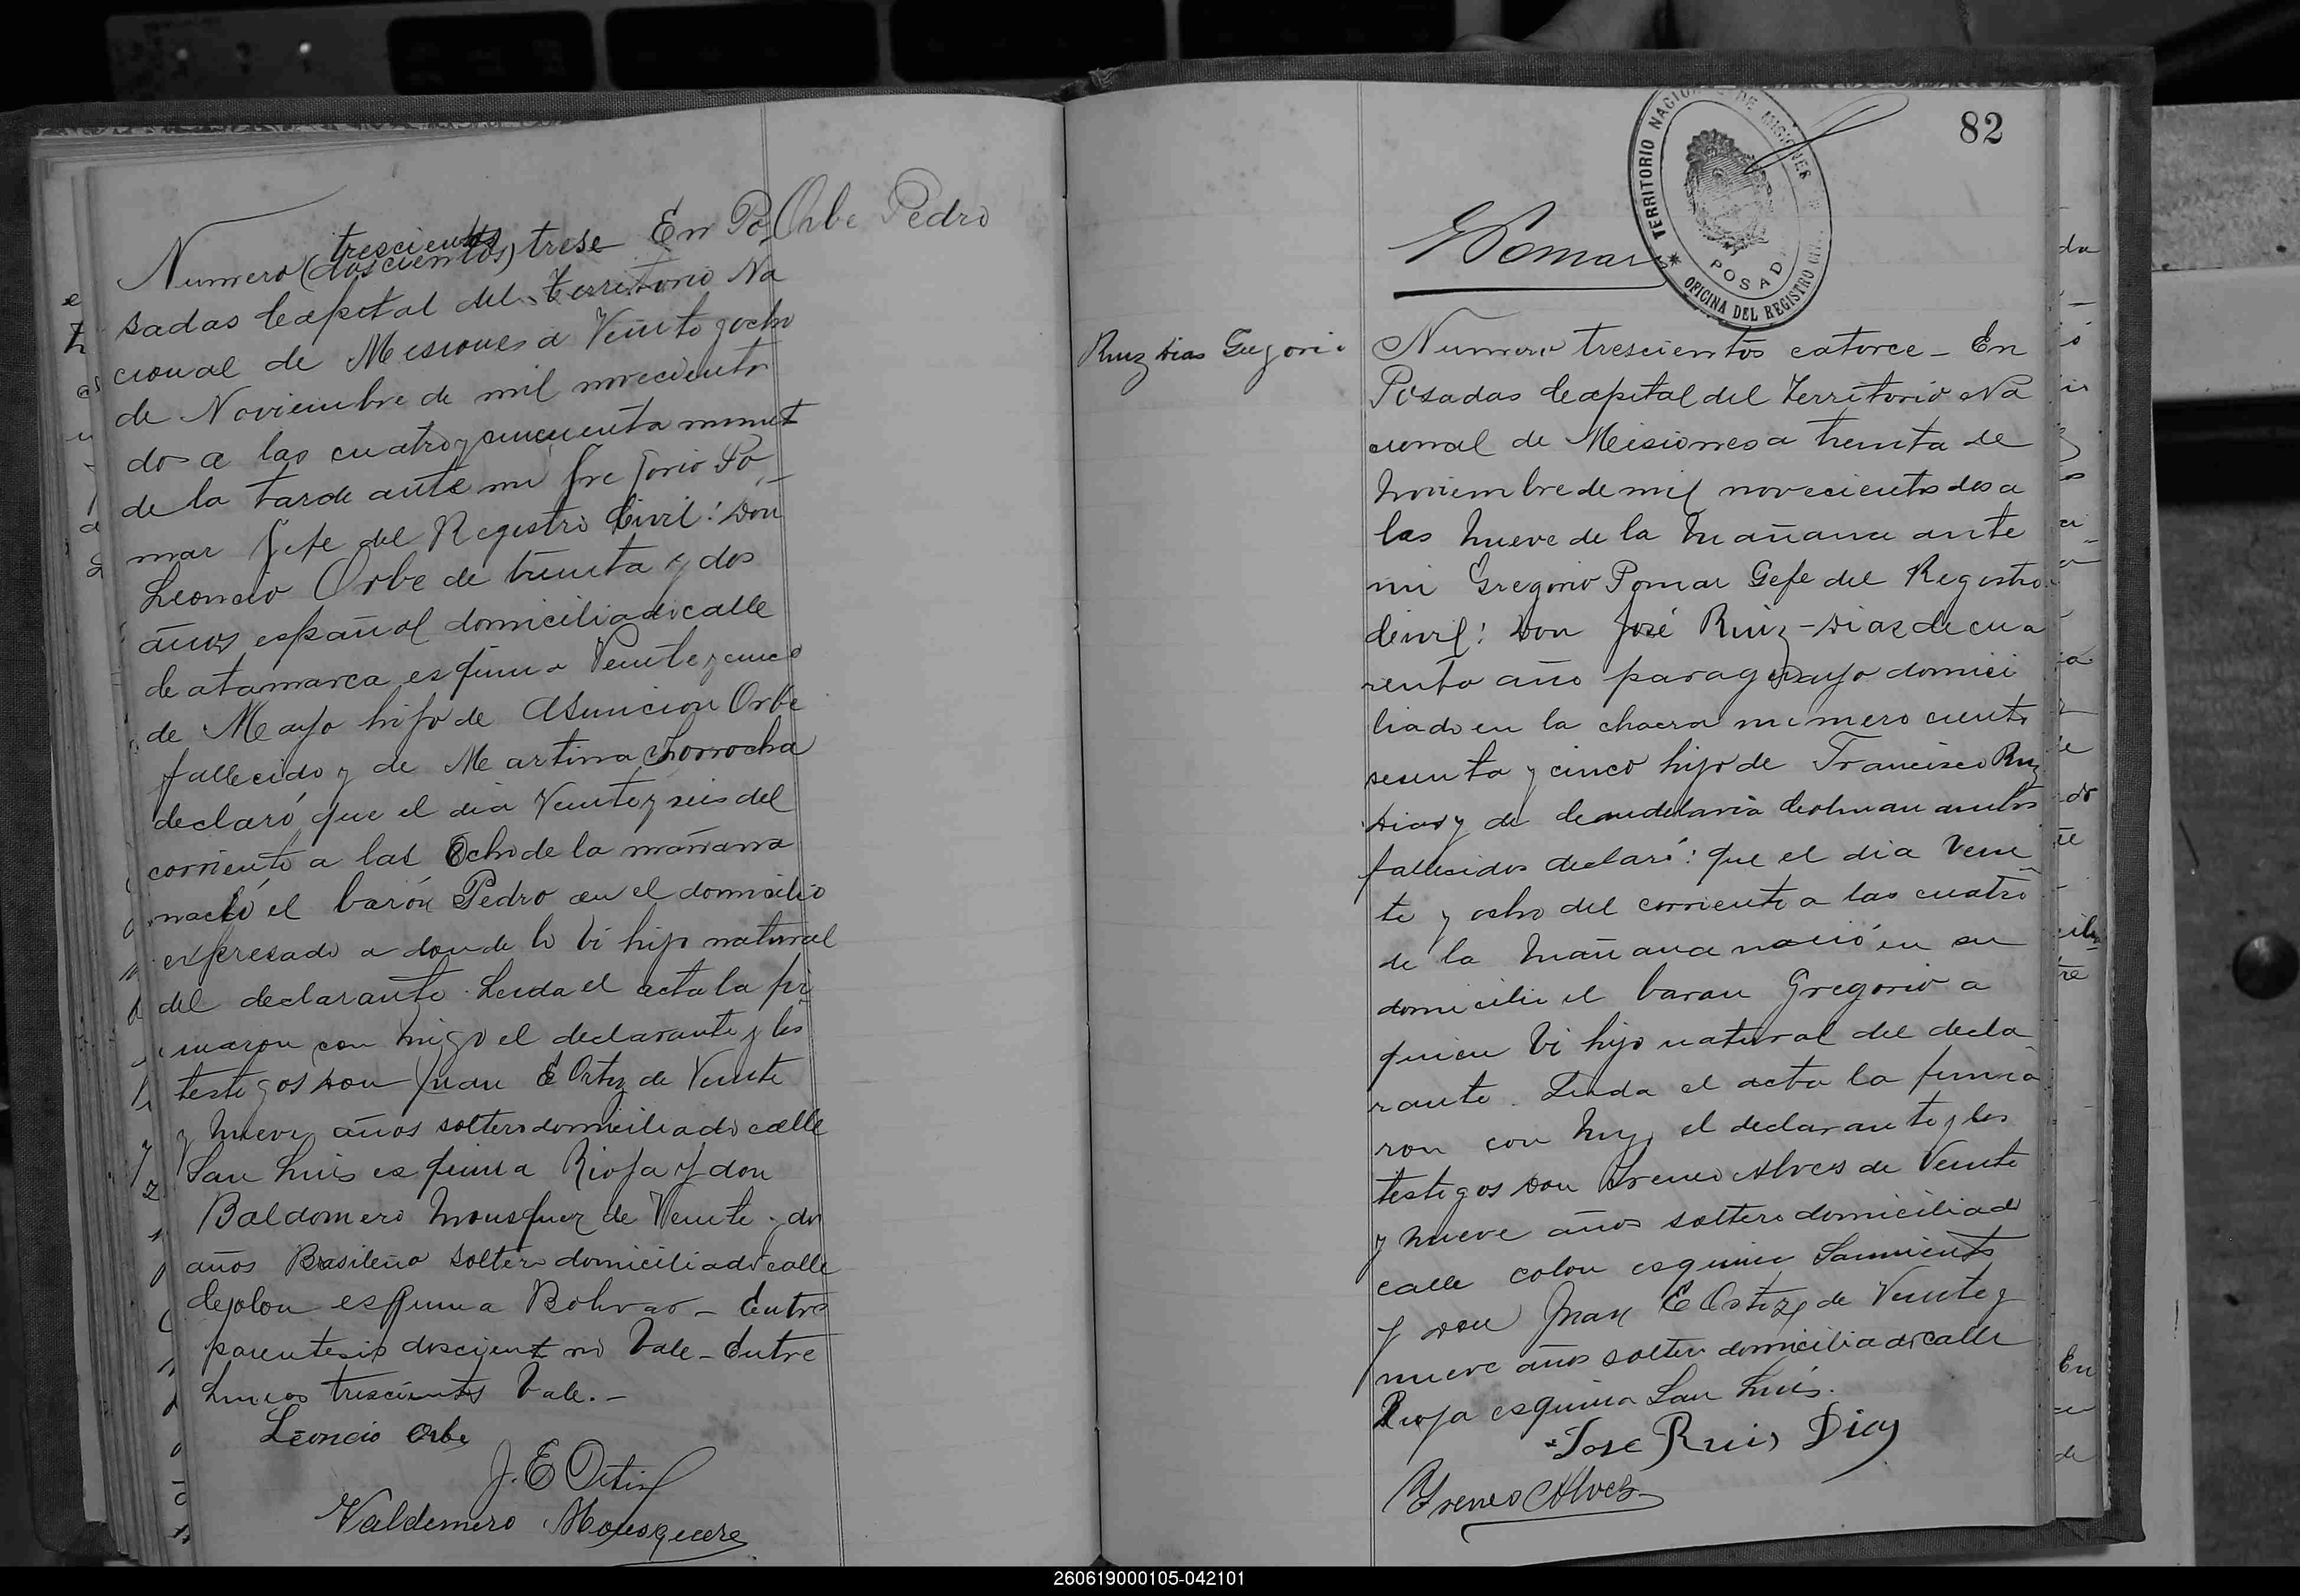 Orbe Pedro
Numero (doscientos) trescientos trese En Po
sadas Capital del Territorio Na
cional de Misiones a Veinte y ocho
de Noviembre de mil novecientos
dos a las cuatro y cincuenta minut
de la tarde ante mi Gregorio Po
mar Jefe del Registro Civil: Don
Leoncio Orbe de treinta y dos
años español domiciliado calle
Catamarca esquina Veinte y cinco
de Mayo hijo de Asuncion Orbe
fallecido y de Martina Chorrocha
declaró que el dia Veinte y seis del
corriente a las Ocho de la mañana
nació el barón Pedro en el domicilio
expresado a donde lo vi hijo natural
del declarante. Leida el acta la fir
maron con migo el declarante y los
testigos Don Juan E Ortiz de Veinte
y nueve años soltero domiciliado calle
San Luis esquina Rioja y don
Baldomero Mousquer de Veinte y dos
años Brasileño soltero domiciliado calle
Colon esquina Bolivar - Entre
parentesis doscient no Vale - Entre
lineas trescientos Vale. -
Leoncio Orbe
J. E Ortiz
Valdemero Mousquere
82
TERRITORIO NACIONAL DE MISIONES
POSADAS
OFICINA DEL REGISTRO CIVIL
G Pomar
Ruiz Dias Gregorio
Numero trescientos catorce - En
Posadas Capital del Territorio Na
cional de Misiones a treinta de
Noviembre de mil novecientos dos a
las nueve de la mañana ante
mi Gregorio Pomar Gefe del Registro
Civil: Don José Ruiz-Diaz de cua
renta año paraguayo domici
liado en la chacra numero ciento
sesenta y cinco hijo de Francisco Ruiz
Dias y de Candelaria Colman ambos
fallecidos declaró: que el dia Vein
te y ocho del corriente a las cuatro
de la mañana nació en su
domicilio el baron Gregorio a
quien vi hijo natural del decla
rante. Leida el acta la firma
ron con migo el declarante y los
testigos Don Ireneo Alves de Veinte
y nueve años soltero domiciliado
calle colon esquina Sarmiento
y don Juan E Ortiz de Veinte y
nueve años soltero domiciliado calle
Rioja esquina San Luis.
Jose Ruis Dias
Yreneo Alvez
260619000105-042101